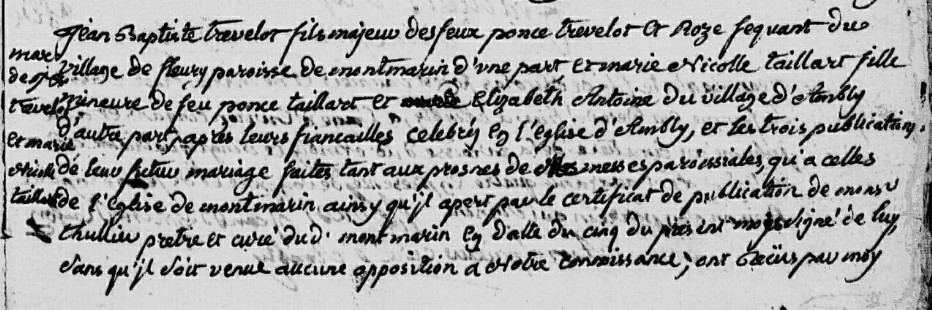 Jean Baptiste trevelot fils majeur des feux ponce trevelot et Roze sequant du
village de fleury paroisse de montmarin d'une part et marie Nicolle taillart fille
mineure de feu ponce taillart et Elizabeth Antoine du village d'Ambly
d'autre part, apres leurs fiancailles celebrés en l'eglise d'Ambly, et les trois publications
de leur futur mariage faites tant aux prosnes de messes paroissiales, qu'a celles
de l'Eglise de montmarin ainsy qu'jl apert par le certificat de publication de monsr
thullier pretre et curé dud. montmarin en datte du cinq du present mois signé de luy,
sans qu'jl soit venue aucune opposition a Notre connoissance; ont recüs par moy
mar
de
trevelot
et marie
Nicole
taillart